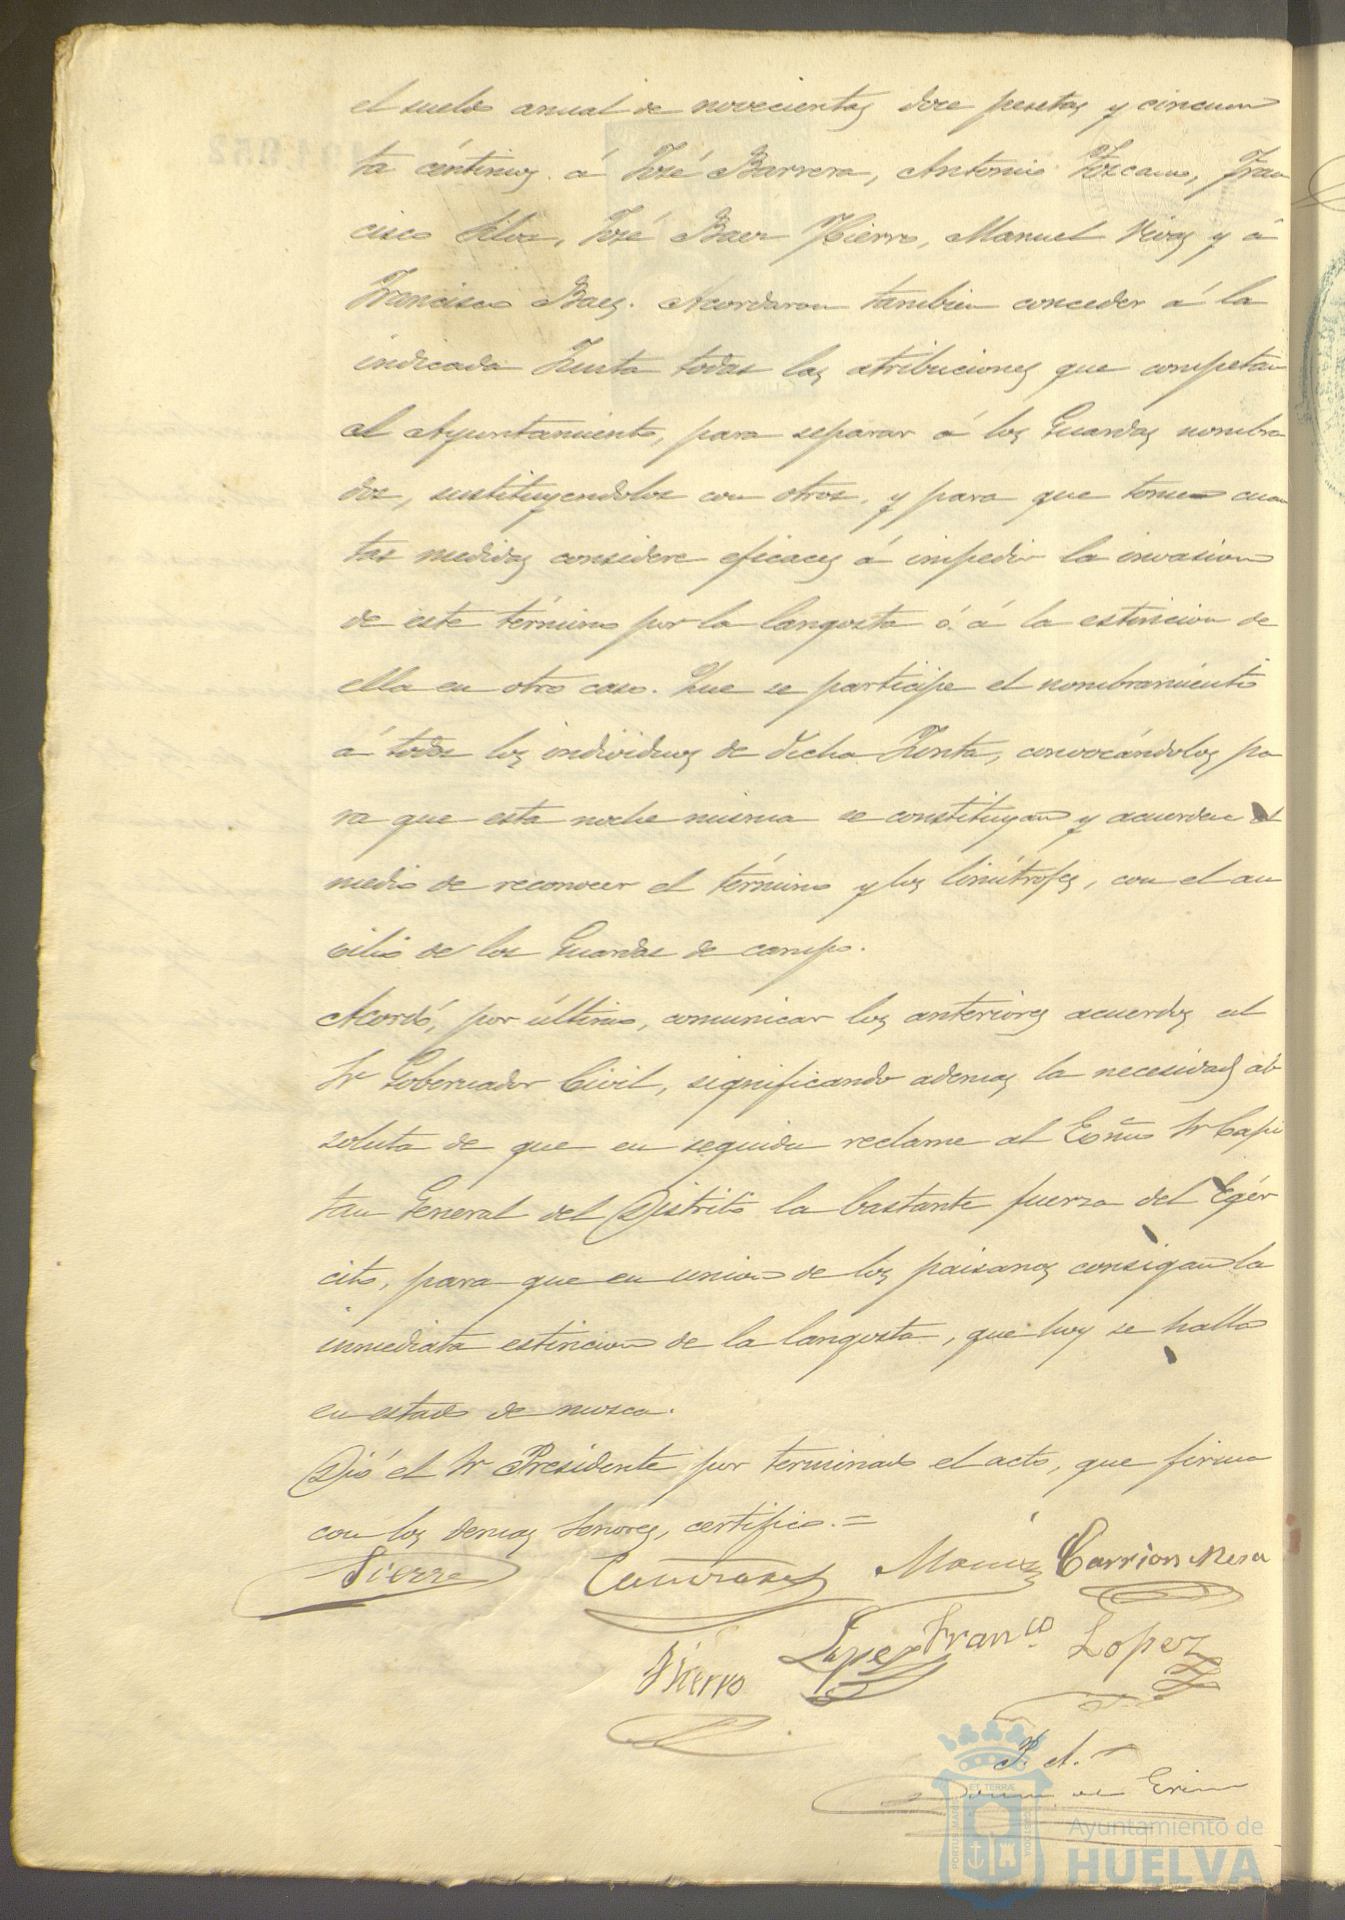 el sueldo anual de novecientas doce pesetas y cincuen
ta céntimos á José Barrera, Antonio Toscano, Fran
cisco Silva, José Baez Hierro, Manuel Vivas y á
Francisco Baez. Acordaron tambien conceder á la
indicada Junta todas las atribuciones que competan
al Ayuntamiento, para separar á los Guardas nombra
dos, sustituyendolos con otros, y para que tome cuan
tas medidas considere eficaces á impedir la invasion
de este término por la langosta ó á la estincion de
ella en otro caso. Que se participe el nombramiento
á todos los individuos de dicha Junta, convocándolos pa
ra que esta noche misma se constituyan y acuerden el
medio de reconocer el término y los limítrofes, con el au
silio de los Guardas de campo.
Acordó, por último, comunicar los anteriores acuerdos al
Sr Gobernador Civil, significando ademas la necesidad ab
soluta de que en seguida reclame al Excmo Sr Capi
tan General del Distrito la bastante fuerza del Egér
cito, para que en union de los paisanos consigan la
inmediata estincion de la langosta, que hoy se halla
en estado de mosca.
Dió el Sr Presidente por terminado el acto, que firma
con los demas Señores, certifico.=
Sierra Carrion Mesa
Hierro Lopez Franco Lopez
P. A.
PORTUS MARIS ET TERRÆ CUSTODIA
Ayuntamiento de
HUELVA